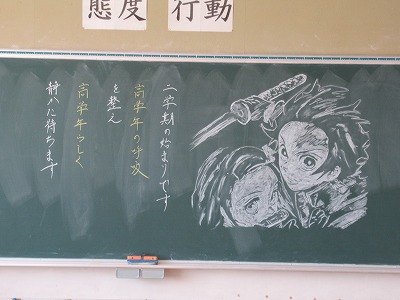 態度 行動
二学期の始まりです。
高学年の呼吸
を整え
高学年らしく
静かに待ちます